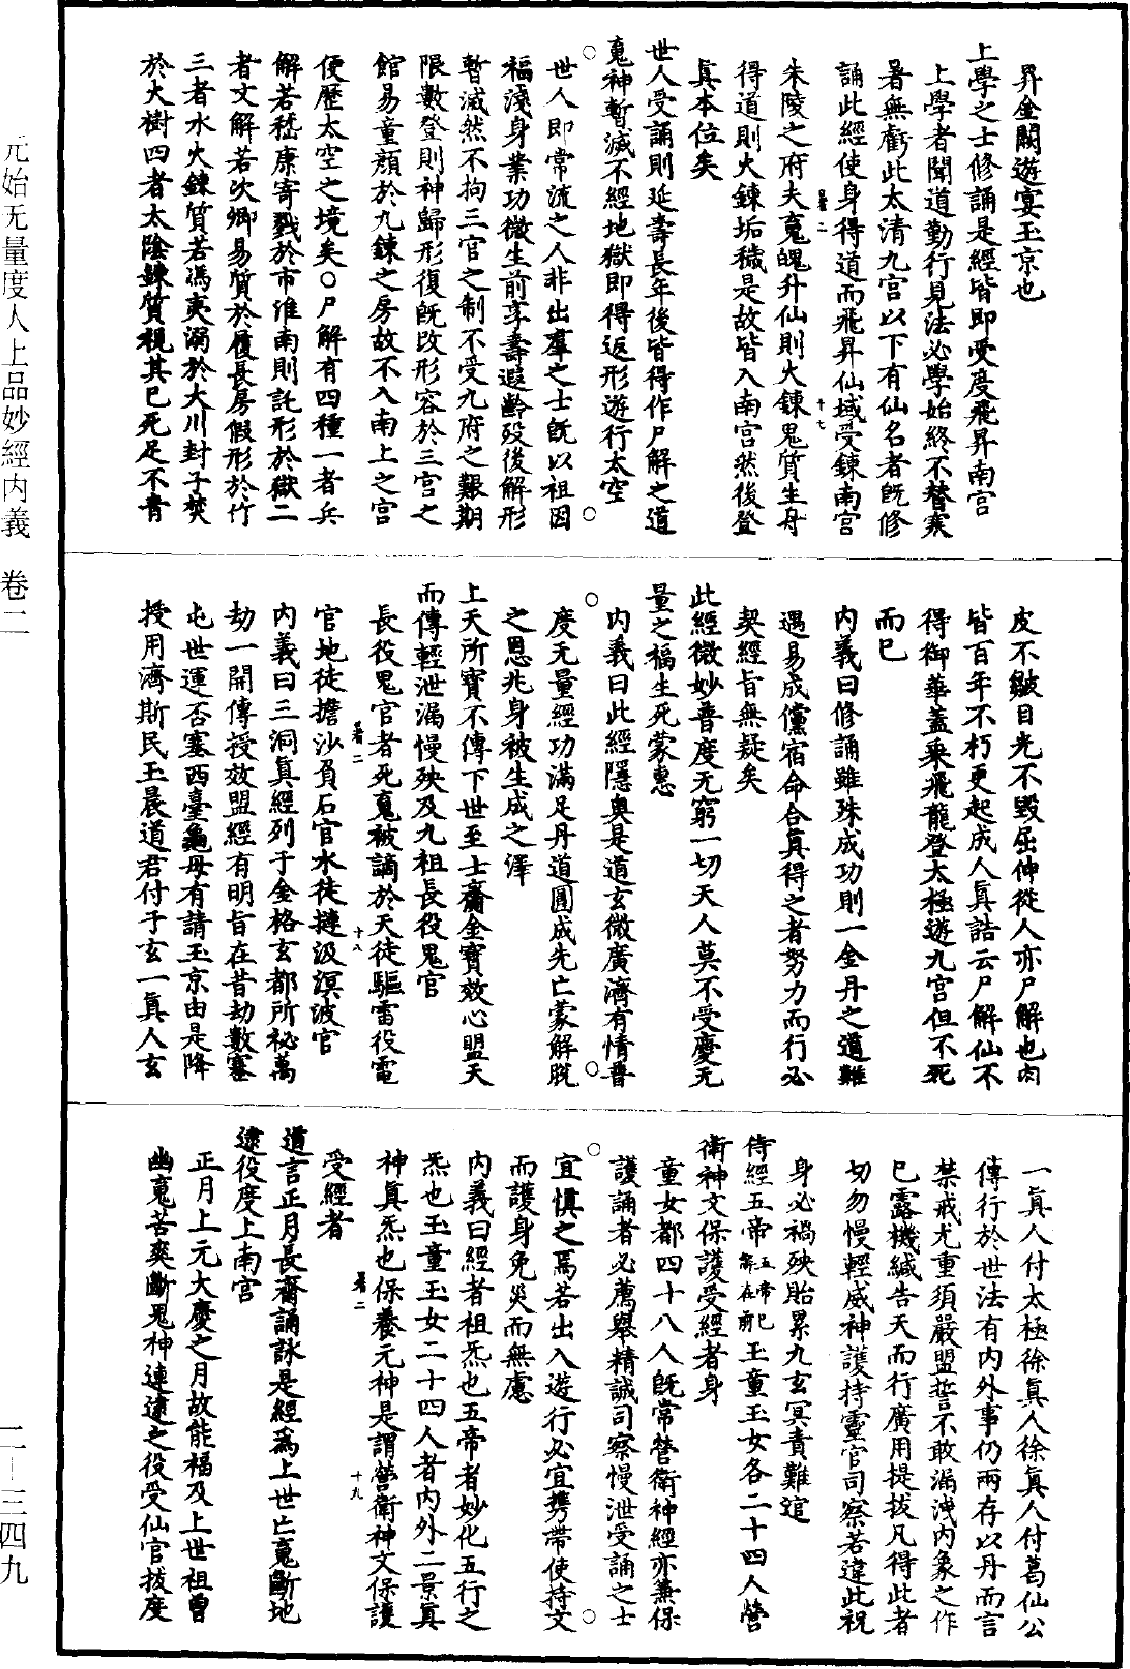 昇金闕遊宴玉京也
上學之士修誦是經皆即受度飛昇南宮
上學者聞道勤行見法必學始終不替寅
暑無虧此太清九宮以下有仙名者既修
誦此經使身得道而飛昇仙域受鍊南宮
暑二
十七
朱陵之府夫䰟魄升仙則火鍊鬼質生身
得道則火鍊垢穢是故皆入南宮然後登
真本位矣
世人受誦則延壽長年後皆得作尸解之道
䰟神暫滅不經地獄即得返形遊行太空
世人即常流之人非出羣之士既以祖因
福淺身業功微生前享壽遐齡歿後解形
暫滅然不拘三官之制不受九府之艱期
限數登則神歸形復既改形容於三宮之
館易童顏於九鍊之房故不入南上之宮
便歷太空之境矣○尸解有四種一者兵
解若嵇康寄戮於市淮南則託形於獄二
者文解若次卿易質於履長房假形於竹
三者水火鍊質若馮夷溺於大川封子焚
於火樹四者太陰鍊質視其已死足不青
皮不皺目光不毀屈伸從人亦尸解也肉
皆百年不朽更起成人真誥云尸解仙不
得御華蓋乘飛龍登太極遊九宮但不死
而已
内義曰修誦雖殊成功則一金丹之道難
遇易成儻宿命合真得之者努力而行必
契經旨無疑矣
此經微妙普度无窮一切天人莫不受慶无
量之福生死蒙惠
内義曰此經隱奥是道玄微廣濟有情普
度无量經功滿足丹道圓成先亡蒙解脱
之恩兆身被生成之澤
上天所寶不傳下世至士齎金寶效心盟天
而傳輕泄漏慢殃及九祖長役鬼官
長役鬼官者死䰟被謫於天徒驅雷役電
暑二
十八
官地徒擔沙負石官水徒摙汲溟波官
内義曰三洞真經列于金格玄都所祕萬
劫一開傳授效盟經有明旨在昔劫數塞
屯世運否塞西臺龜母有請玉京由是降
授用濟斯民玉晨道君付于玄一真人玄
一真人付太極徐真人徐真人付葛仙公
傳行於世法有内外事仍兩存以丹而言
禁戒尤重須嚴盟誓不敢漏洩内象之作
已露機緘告天而行廣用提拔凡得此者
切勿慢輕威神護持靈官司察若違此祝
身必禍殃貽累九玄冥責難逭
侍經五帝五帝已解在前玉童玉女各二十四人營
衛神文保護受經者身
童女都四十八人既常營衛神經亦兼保
護誦者必薦舉精誠司察慢泄受誦之士
宜懼之焉若出入遊行必宜携帶使持文
而護身免災而無慮
内義曰經者祖炁也五帝者妙化五行之
炁也玉童玉女二十四人者内外二景真
神真炁也保養元神是謂營衛神文保護
暑二
十九
受經者
道言正月長齋誦詠是經爲上世亡䰟斷地
逮役度上南宮
正月上元大慶之月故能福及上世祖曾
幽䰟苦爽斷鬼神連逮之役受仙官拔度
元始无量度人上品妙經内義 卷二
二—三四九